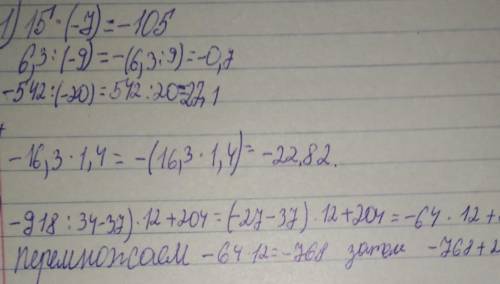 1) 15 · (-7) = -105
6,3 : (-9) = -(6,3 : 9) = -0,7
-542 : (-20) = 542 : 20 = 27,1
-16,3 · 1,4 = -(16,3 · 1,4) = -22,82.
-918 : 34-37) · 12 + 204 = (-27-37) · 12 + 204 = -64 · 12 +
перемножаем -64 · 12 = -768 затем -768 + 2